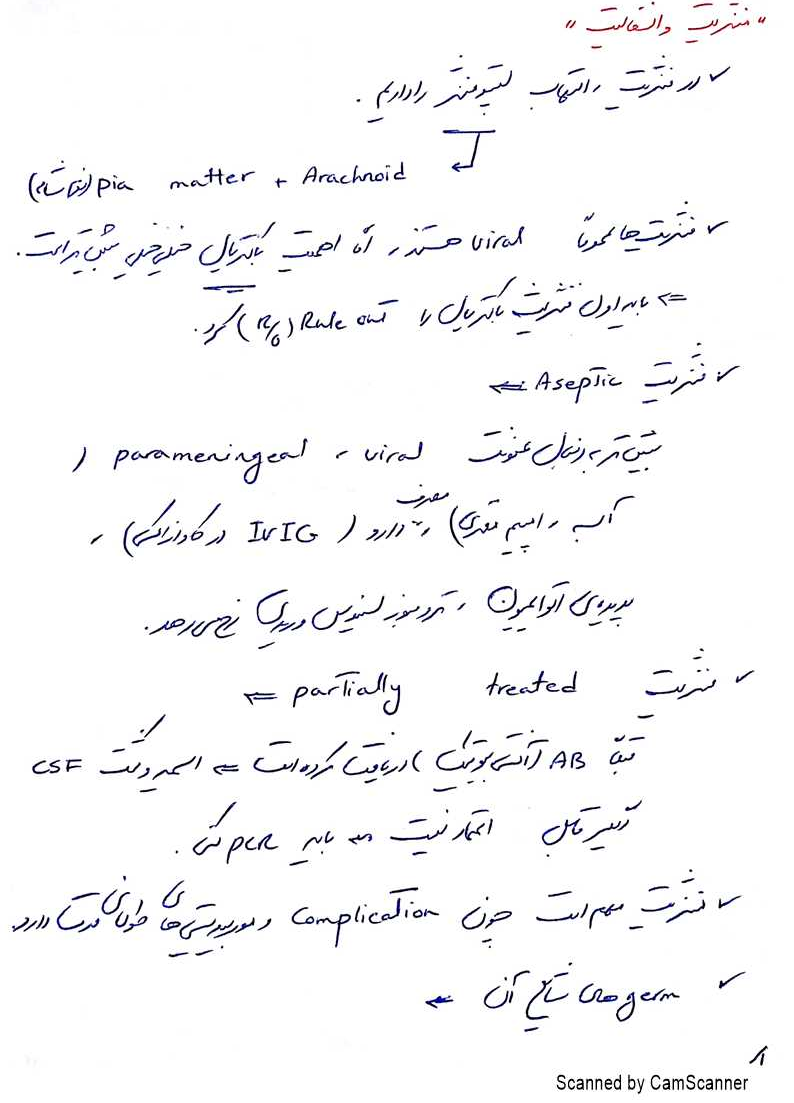 "مننژیت و انسفالیت"
✓ در مننژیت، التهاب لپتومننژ را داریم.
(نرم شامه) pia matter + Arachnoid
✓ مننژیت‌ها عموماً viral هستند، اما اهمیت باکتریال خیلی خیلی بیش‌تر است.
⇐ باید اول مننژیت باکتریال را Rule out (R/o) کرد.
✓ مننژیت Aseptic ⇐
بیش‌تر به دنبال عفونت viral، parameningeal (
آبسه، آمپیم مغزی)، مصرف دارو (IVIG در کاوازاکی)،
پدیده‌ی اتوایمیون، ترومبوز سینوس وریدی رخ می‌دهد.
✓ مننژیت partially treated ⇐
قبلاً AB (آنتی بیوتیک) دریافت کرده است ⇐ اسمیر و کشت CSF
دیگر قابل اعتماد نیست باید PCR کنی.
✓ مننژیت مهم است چون complication و موربیدیتی‌های طولانی مدت دارد.
✓ germ های شایع آن ⇐
۱
Scanned by CamScanner